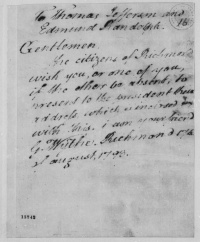 To Thomas Jefferson and
Edmund Randolph.
Gentlemen
The citizens of Richmond
wish you, or one of you,
if the other be absent, to
present to the president their
address which is inclosed
with this. i am your friend
G. Wythe. Richmond 17th
of august, 1793.